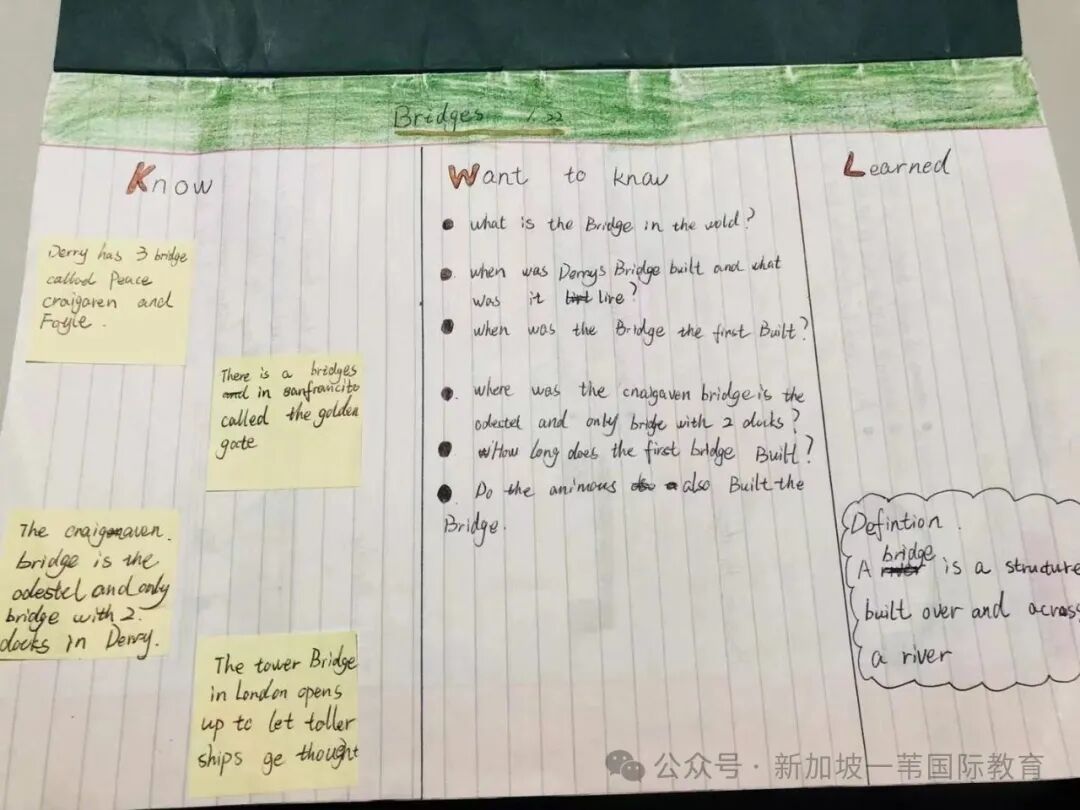 Bridges 1.22
Know
Derry has 3 bridge
called Peace
craigaren and
Foyle.
There is a bridges
in sanfrancito
called the golden
gate
The craigaven
bridge is the
odestel and only
bridge with 2
docks in Derry.
The tower Bridge
in London opens
up to let toller
ships ge thought
Want to know
what is the Bridge in the wold?
when was Derrys Bridge built and what
was it live?
when was the Bridge the first Built?
where was the craigaven bridge is the
odestel and only bridge with 2 ducks?
How long does the first bridge Built?
Do the animous also Built the
Bridge.
Learned
Defintion.
A bridge is a structure
built over and across
a river
公众号·新加坡一苇国际教育